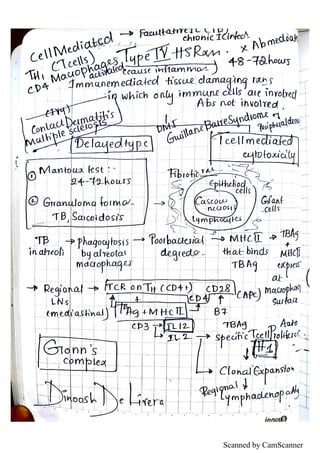 → Facultative IC
chronic infection
Cell Mediated → Type IV HS Rxn. x Ab mediated
(T cells)
TH1 Macrophages activated (cause inflammation) 48-72 hours
CD4
Immunemediated tissue damaging rxns
in which only immune cells are involved
Abs not involved.
Contact Dermatitis
Multiple sclerosis
DMT1
Guillane Barre Syndrome
Peripheral
Delayed type
T cell mediated
cytotoxicity
① Mantoux test :-
24-72 hours
② Granuloma formn.
TB, Sarcoidosis
Fibrotic
Epitheliod
cells
Caseous
necrosis
Giant
cells
Lymphocytes
TB → phagocytosis → Poor bacterial → MHC II → TBAg
in alveoli by alveolar degredn. that binds MHC II
macrophages TBAg
→ Regional → TCR on TH (CD4+) CD28
LNs + CD4 (APC) Macrophag
(mediastinal) Ag + MHC II B7 surface
CD3 → IL12 TBAg
IL 2 → Specific T cell
TH1
Ghonn's
complex
→ Clonal Expansion
→ Regional
Lymphadenopathy
Dinoosh De Livera
Scanned by CamScanner